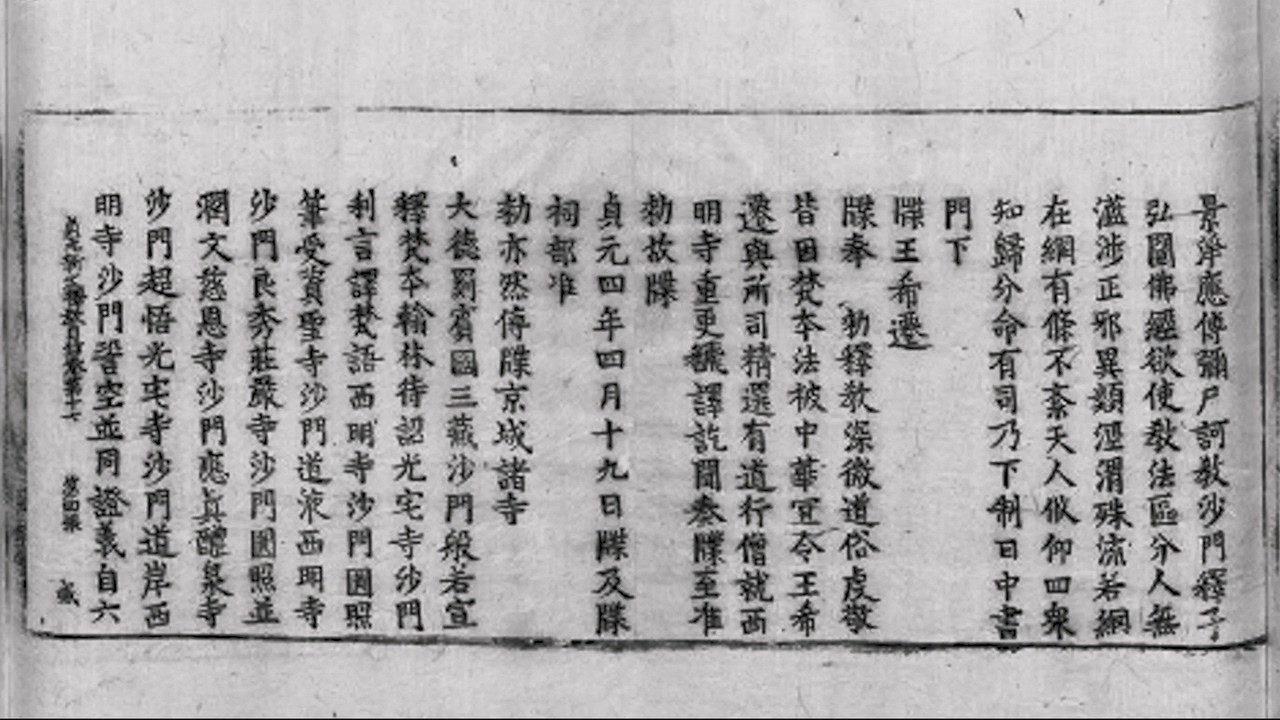 景淨應傳彌尸訶教沙門釋子
弘闡佛經欲使教法區分人無
濫涉正邪異類涇渭殊流若網
在綱有條不紊天人攸仰四衆
知歸分命有司乃下制曰中書
門下
牒王希遷
牒奉 勑釋教深微道俗虔敬
皆因梵本法被中華宜令王希
遷與所司精選有道行僧就西
明寺重更飜譯訖聞奏牒至准
勑故牒
貞元四年四月十九日牒及牒
祠部准
勑亦然傳牒京城諸寺
大德罽賓國三藏沙門般若宣
釋梵本翰林待詔光宅寺沙門
利言譯梵語西明寺沙門圓照
筆受資聖寺沙門道液西明寺
沙門良秀莊嚴寺沙門圓照並
潤文慈恩寺沙門應真醴泉寺
沙門超悟光宅寺沙門道岸西
明寺沙門䛒空並同證義自六
貞元新定釋教目錄卷第十七 第四張